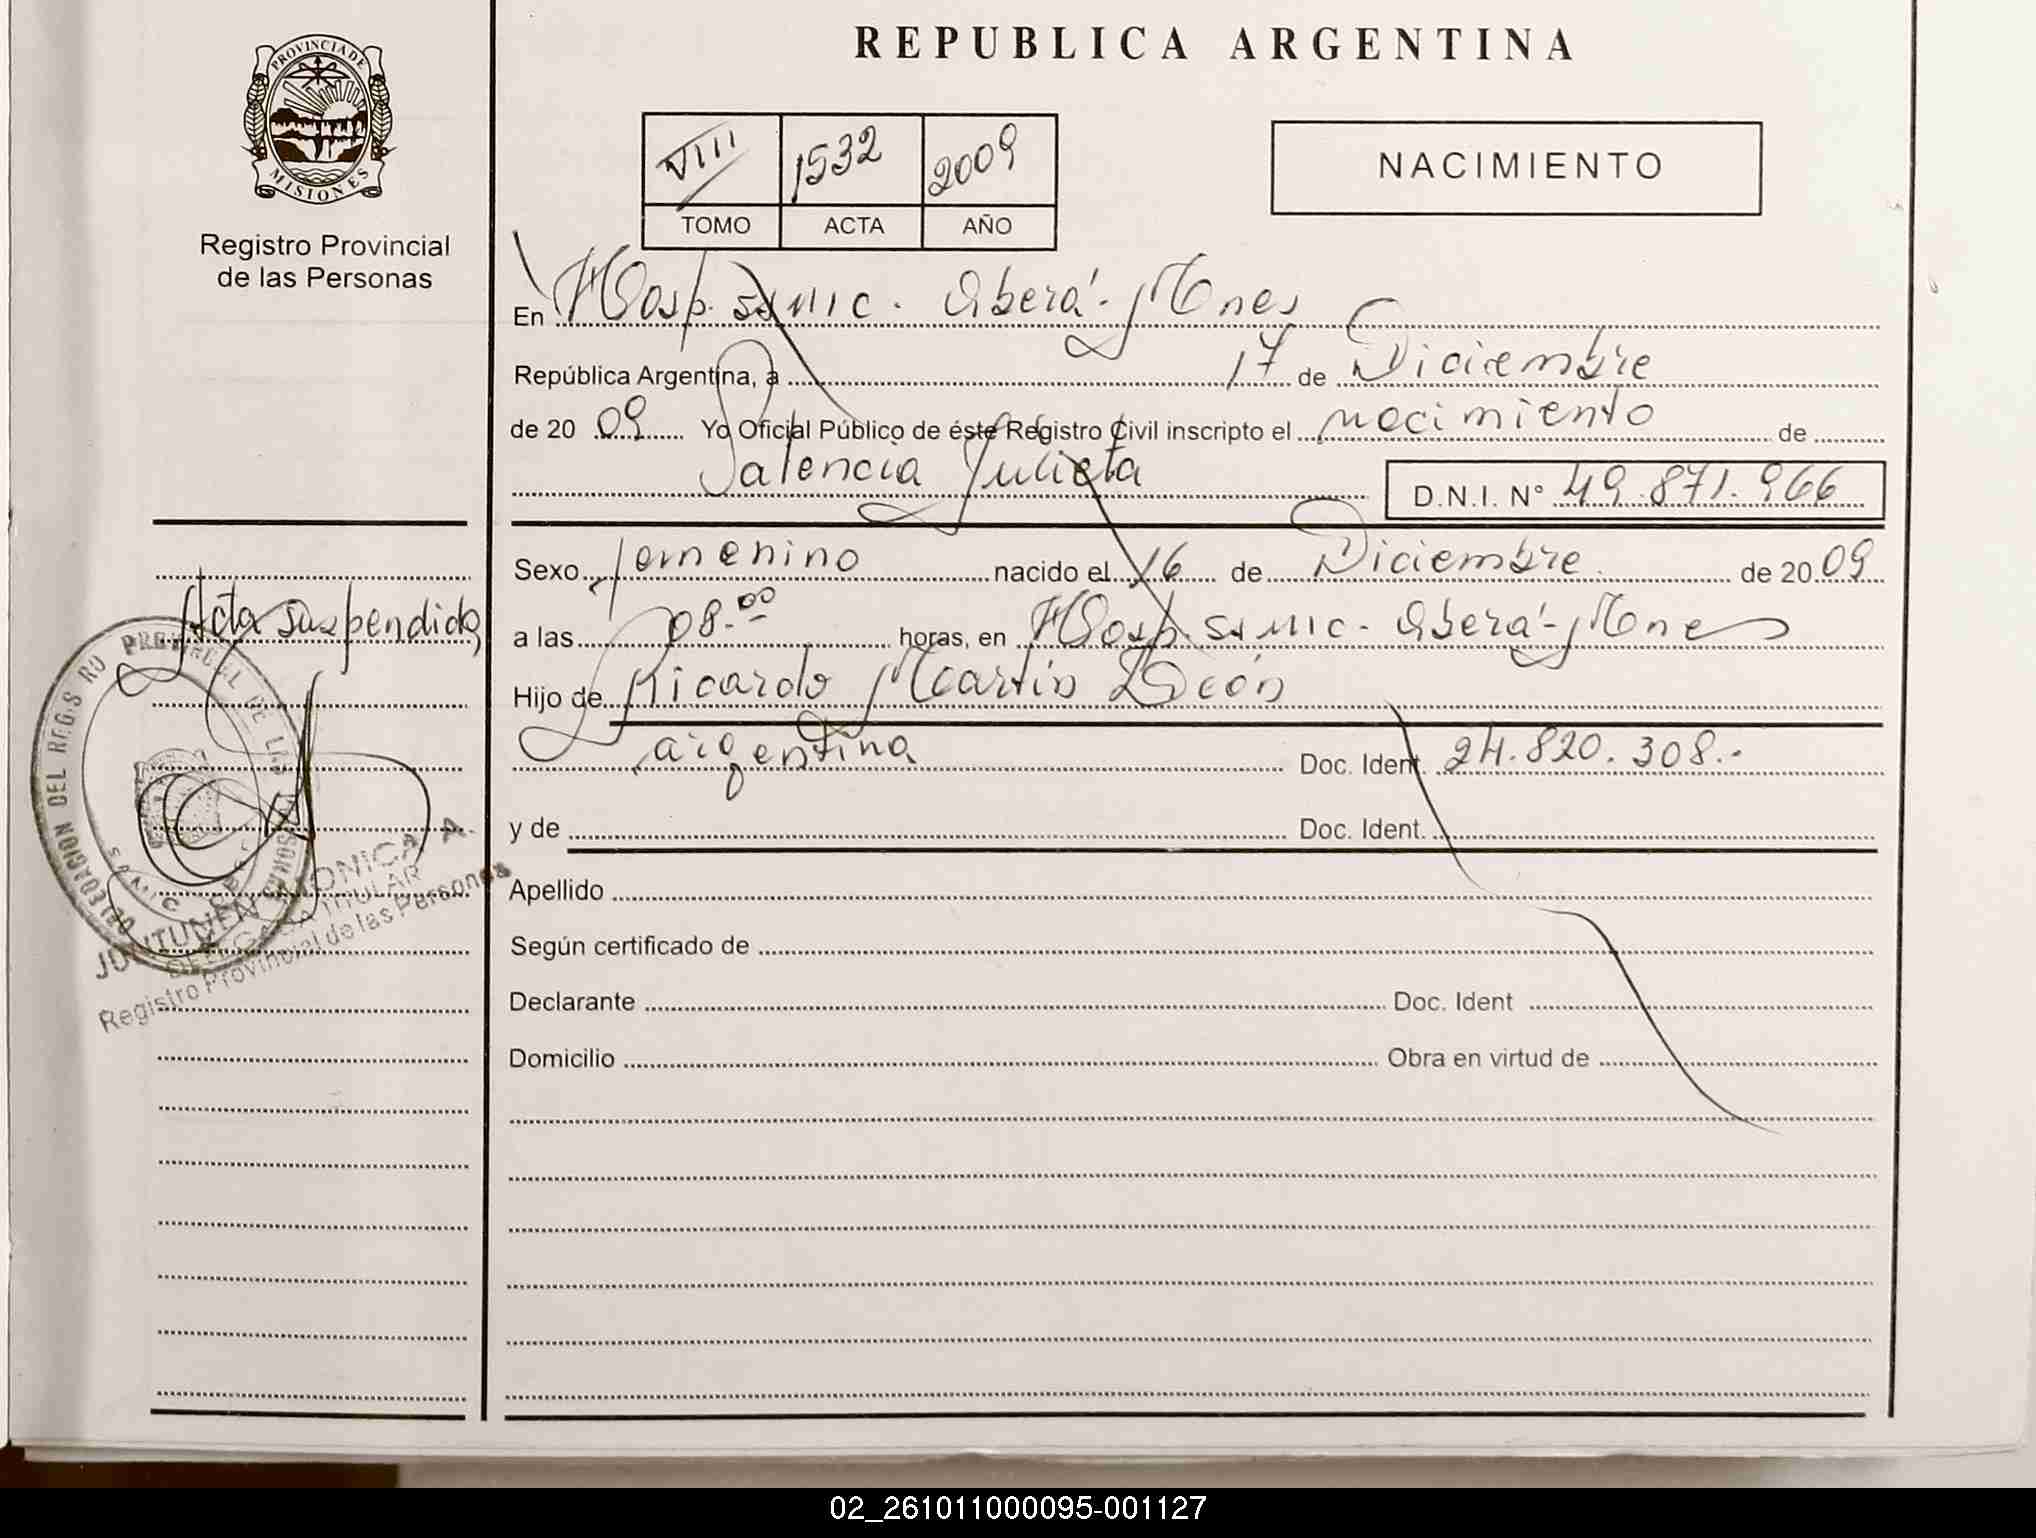 REPUBLICA ARGENTINA
PROVINCIA DE
MISIONES
Registro Provincial
de las Personas
VIII 1532 2009
TOMO ACTA AÑO
NACIMIENTO
En Hosp. SAMIC. Oberá - Mnes
República Argentina, a 17 de Diciembre
de 20 09 Yo Oficial Público de éste Registro Civil inscripto el nacimiento de
Palencia Julieta
D.N.I. N° 49.871.966
Sexo femenino nacido el 16 de Diciembre de 20 09
a las 08.00 horas, en Hosp. SAMIC. Oberá - Mnes
Hijo de Ricardo Martín León
argentina Doc. Ident. 24.820.308.-
y de Doc. Ident.
Apellido
Según certificado de
Declarante Doc. Ident
Domicilio Obra en virtud de
Acta suspendida
DELEGACION DEL REGISTRO PROVINCIAL DE LAS PERSONAS
MONICA A.
DELEGADA TITULAR
Registro Provincial de las Personas
02_261011000095-001127